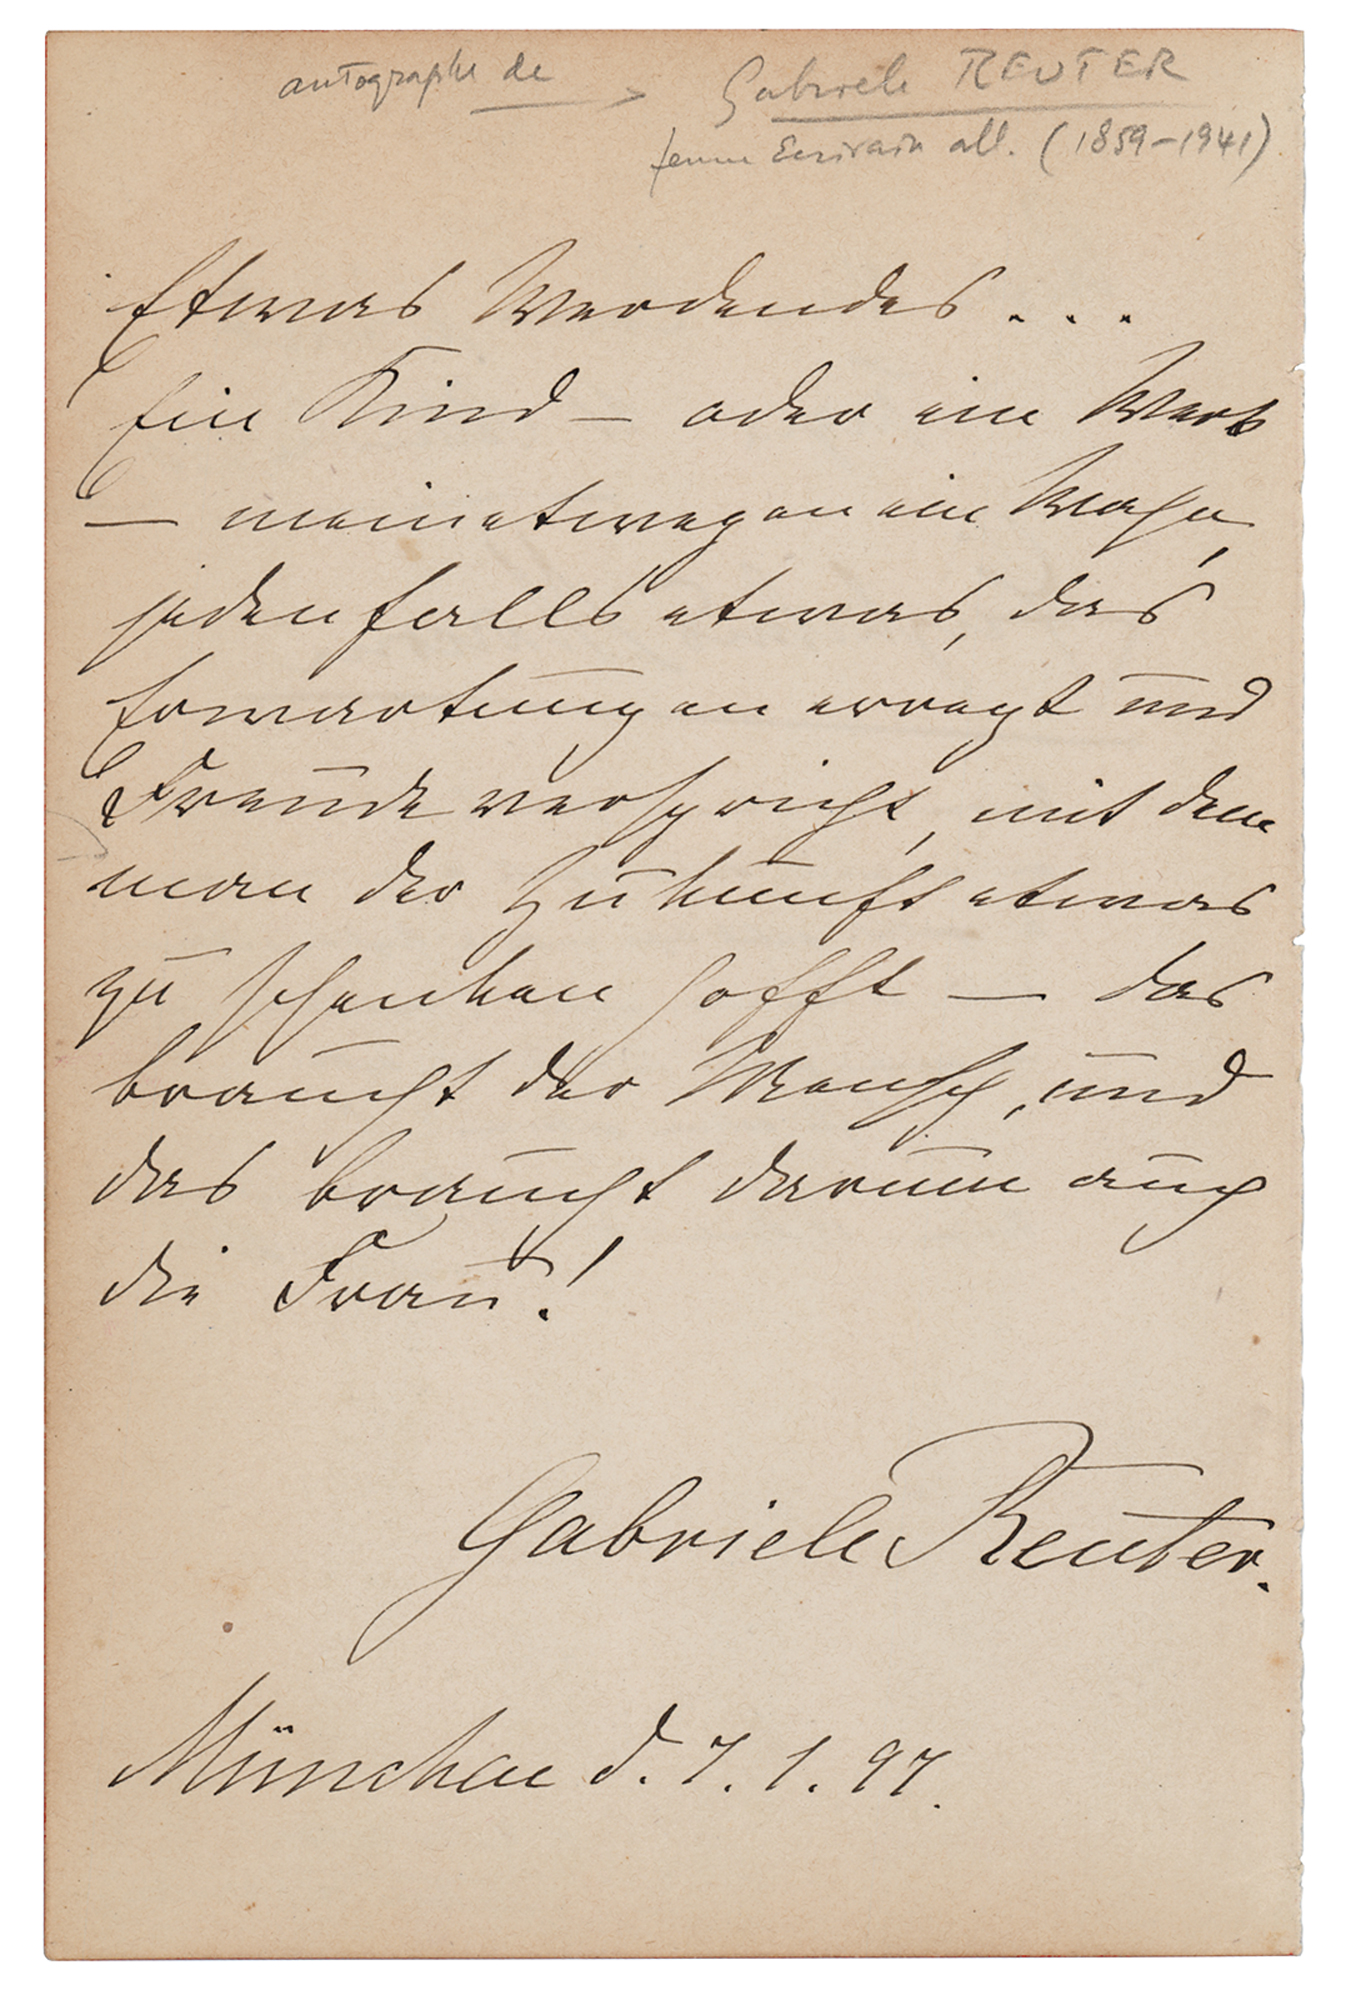 autographe de → Gabriele REUTER
femme Ecrivain all. (1859-1941)
Etwas Werdendes . . .
Ein Kind – oder ein Werk
– meinetwegen ein Wahn,
jedenfalls etwas, das
Erwartungen erregt und
Freude verspricht, mit dem
man der Zukunft etwas
zu schenken hofft – das
braucht der Mensch, und
das braucht darum auch
die Frau!
Gabriele Reuter.
München d. 7. 1. 97.